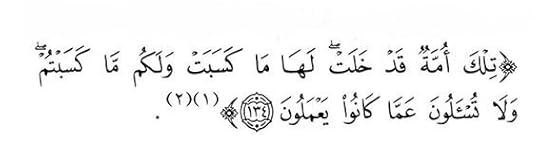 ﴿تِلْكَ أُمَّةٌ قَدْ خَلَتْ ۖ لَهَا مَا كَسَبَتْ وَلَكُم مَّا كَسَبْتُمْ ۖ
وَلَا تُسْـَٔلُونَ عَمَّا كَانُوا۟ يَعْمَلُونَ ١٣٤﴾(١)(٢).